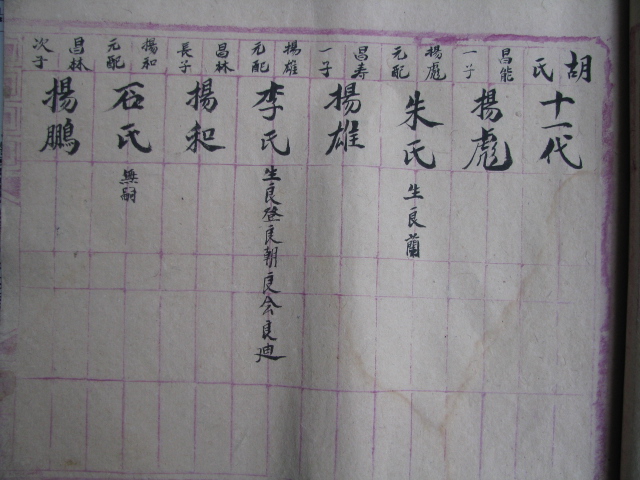 胡氏
十一代
昌能一子
揚彪
揚彪元配
朱氏
生良蘭
昌寿一子
揚雄
揚雄元配
李氏
生良登良朝良会良迪
昌林長子
揚和
揚和元配
石氏
無嗣
昌林次子
揚鵬